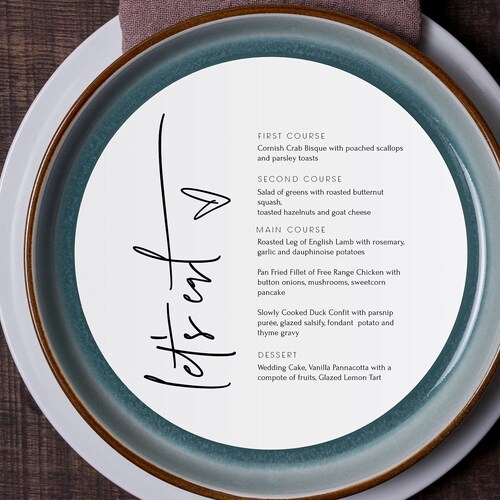 let's eat
FIRST COURSE
Cornish Crab Bisque with poached scallops
and parsley toasts
SECOND COURSE
Salad of greens with roasted butternut
squash,
toasted hazelnuts and goat cheese
MAIN COURSE
Roasted Leg of English Lamb with rosemary,
garlic and dauphinoise potatoes
Pan Fried Fillet of Free Range Chicken with
button onions, mushrooms, sweetcorn
pancake
Slowly Cooked Duck Confit with parsnip
purée, glazed salsify, fondant potato and
thyme gravy
DESSERT
Wedding Cake, Vanilla Pannacotta with a
compote of fruits, Glazed Lemon Tart